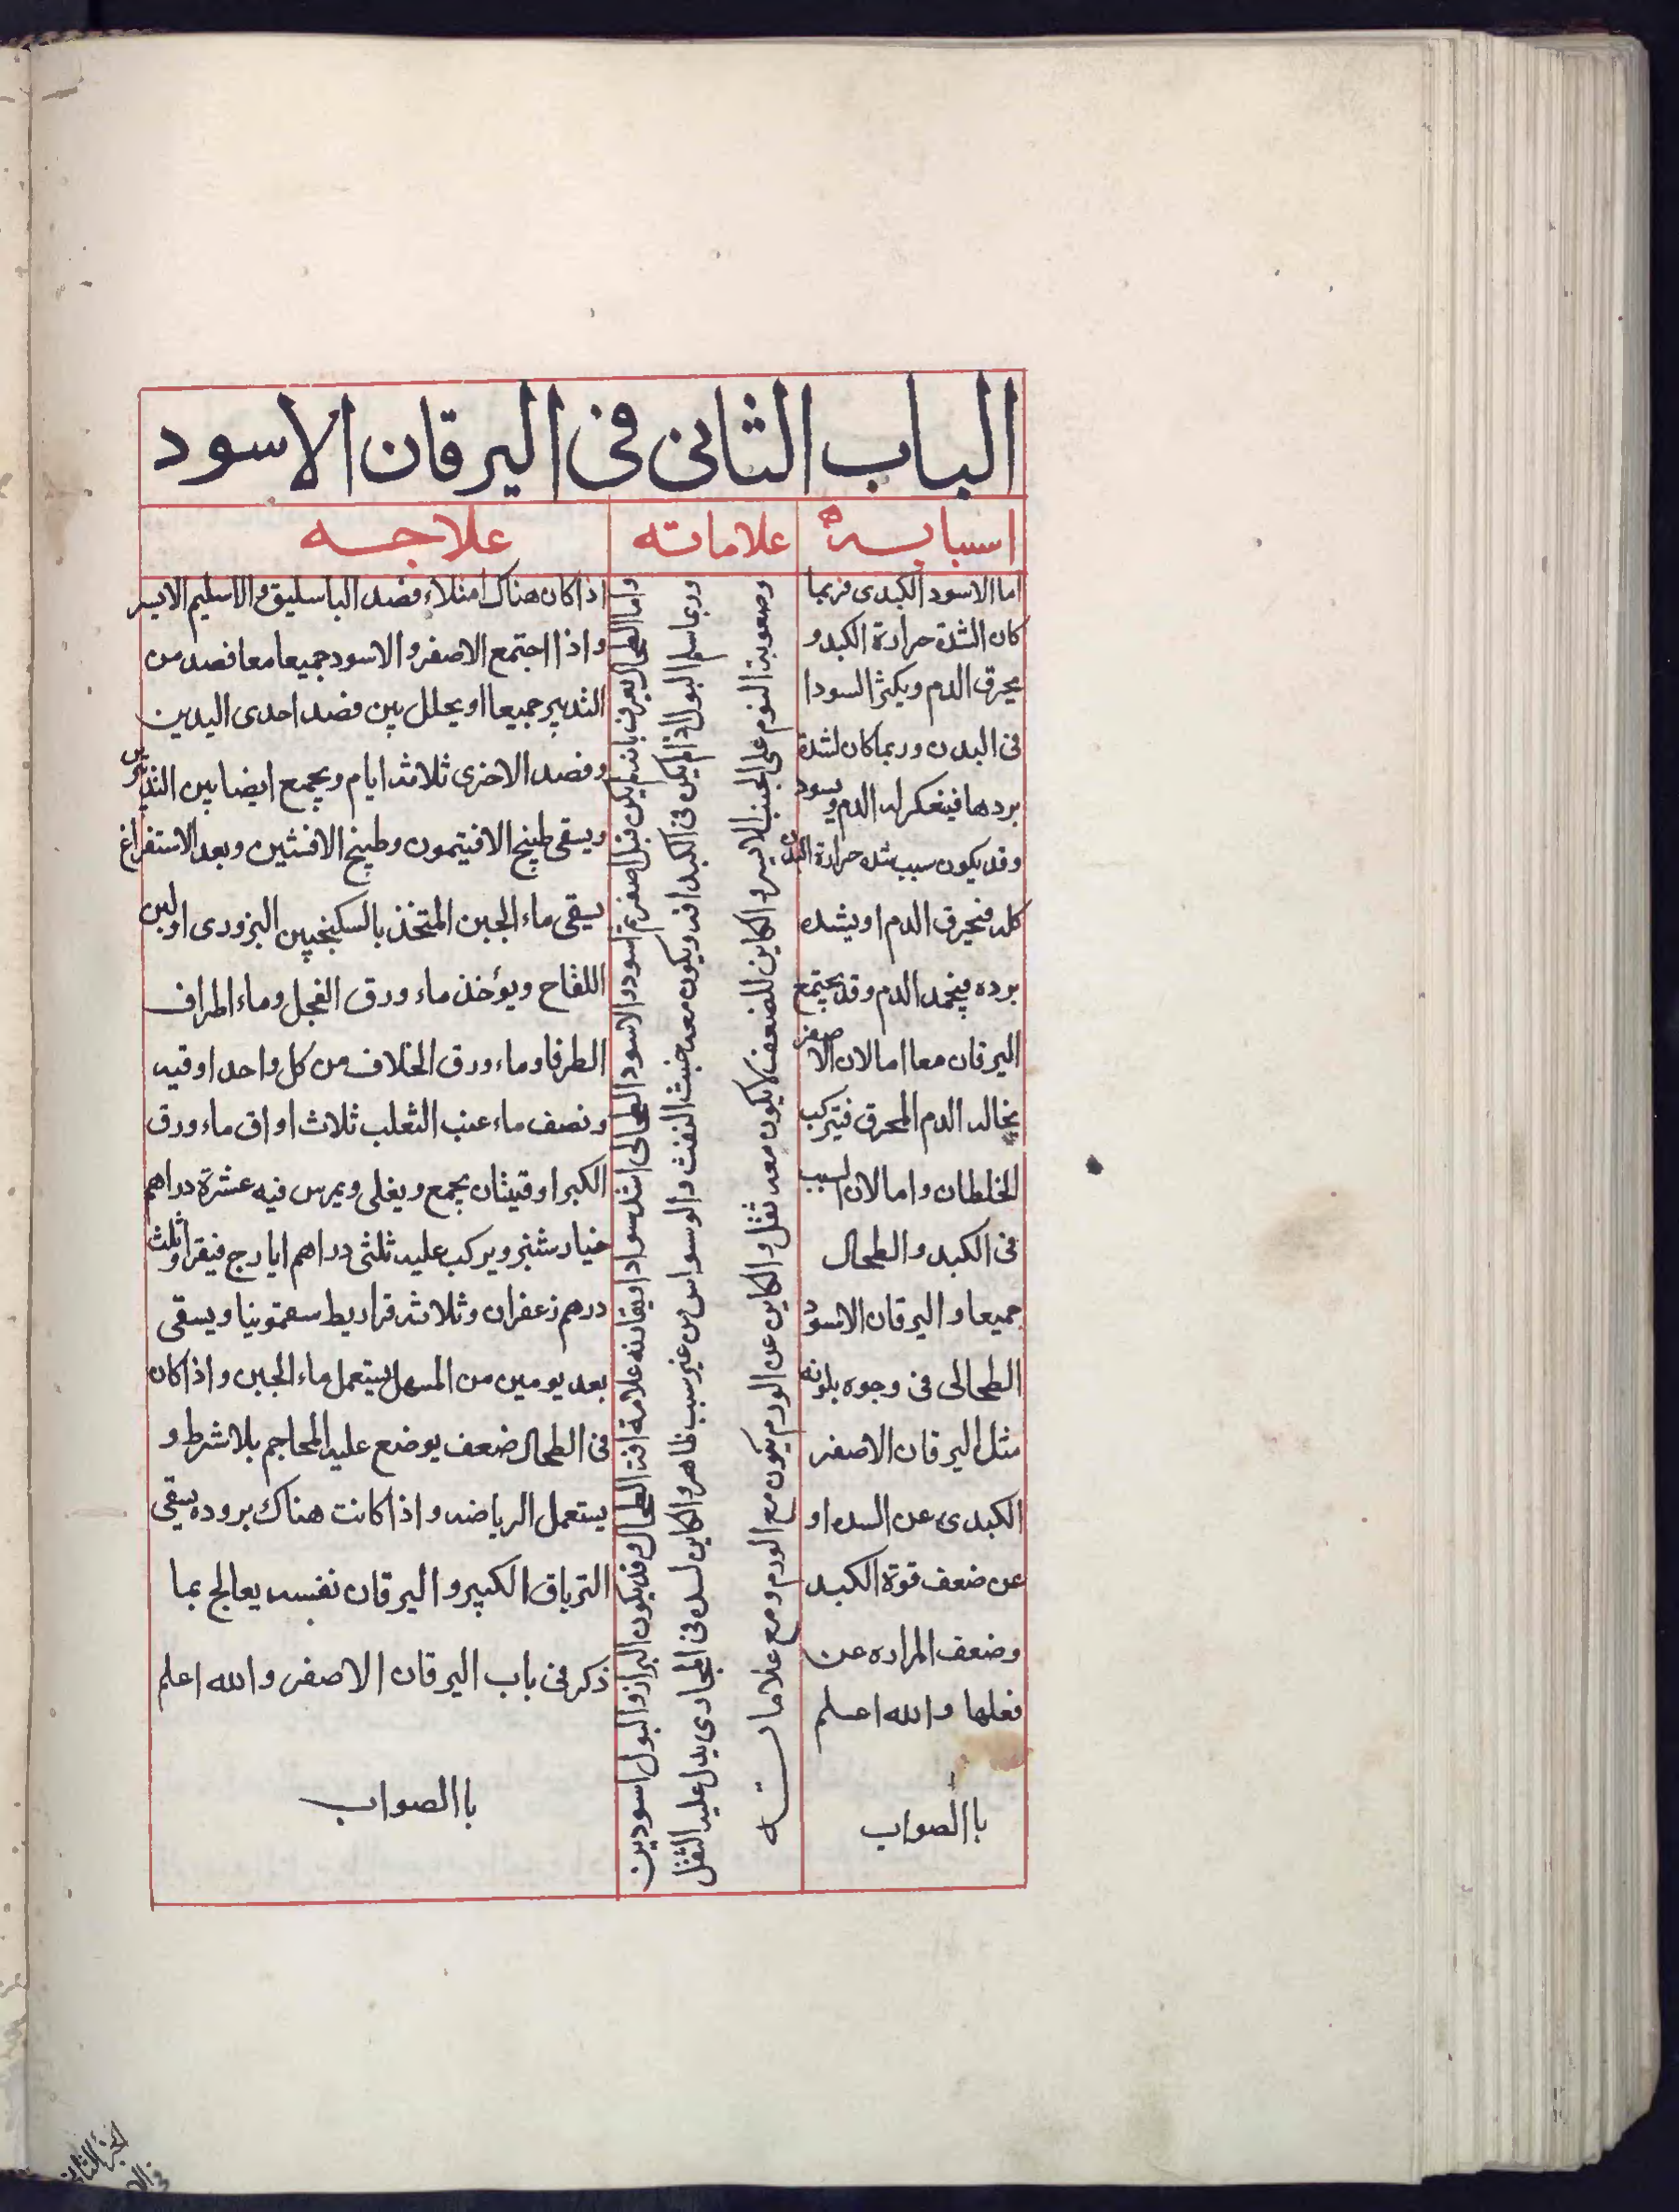 الباب الثانى فى اليرقان الاسود
اسبابه
علاماته
علاجه
اما الاسود الكبدى فربما
كان الشدة حرارة الكبد و
يحرق الدم ويكثر السودا
فى البدن وربما كان لشدة
بردها فيتعكر له الدم ويسود
وقد يكون سبب شده حرارة البدن
كله فيحرق الدم او يشده
برده فيجمد الدم وقد يجتمع
اليرقان معا اما لان الاصفر
يخالد الدم المحرق فيتركب
الخلطان واما لان السبب
فى الكبد والطحال
جميعا واليرقان الاسود
الطحالى فى وجوه بلونه
مثل اليرقان الاصفر
الكبدى عن السده او
عن ضعف قوة الكبد
وضعف المراره عن
فعلها والله اعلم
باالصواب
واما الطحال يعرف بانه لم يكن قبل اصفر ثم اسود والاسود الطحالى اشد سوادا ويقارنه علامة افة الطحال وقد يكون البراز والبول اسودين
وربما سلم البول اذا لم يكن فى الكبد افة ويكون معه خبث النفث والوسواس من غير سبب ظاهر والكاين لسده فى المجارى يدل عليه الثقل
وصعوبة النوم على الجنب الايسر والكاين للضعف لا يكون معه ثقل والكاين عن الورم يكون مع الورم ومع علاماته
اذا كان هناك امتلاء فصد الباسليق والاسليم الايسر
واذا اجتمع الاصفر والاسود جميعا معا فصد من
التدبير جميعا او يحلل بين فصد احدى اليدين
وفصد الاخرى ثلاثه ايام ويجمع ايضا بين التدبيرين
ويسقى طبيخ الافتيمون وطبيخ الافسنتين وبعد الاستفراغ
يسقى ماء الجبن المتخذ بالسكنجبين البزورى او لبن
اللقاح ويؤخذ ماء ورق الفجل وماء اطراف
الطرفا وماء ورق الخلاف من كل واحد اوقيه
ونصف ماء عنب الثعلب ثلاث اواق ماء ورق
الكبر اوقيتان يجمع ويغلى ويمرس فيه عشرة دراهم
خيار شنبر ويركب عليه ثلثى دراهم ايارج فيقرا وثلث
درهم زعفران وثلاثه قراريط سقمونيا ويسقى
بعد يومين من المسهل يستعمل ماء الجبن واذا كان
فى الطحال ضعف يوضع عليه المحاجم بلا شرط و
يستعمل الرياضه واذا كانت هناك بروده يسقى
الترياق الكبير واليرقان نفسه يعالج بما
ذكر فى باب اليرقان الاصفر والله اعلم
باالصواب
الجزء الثانى